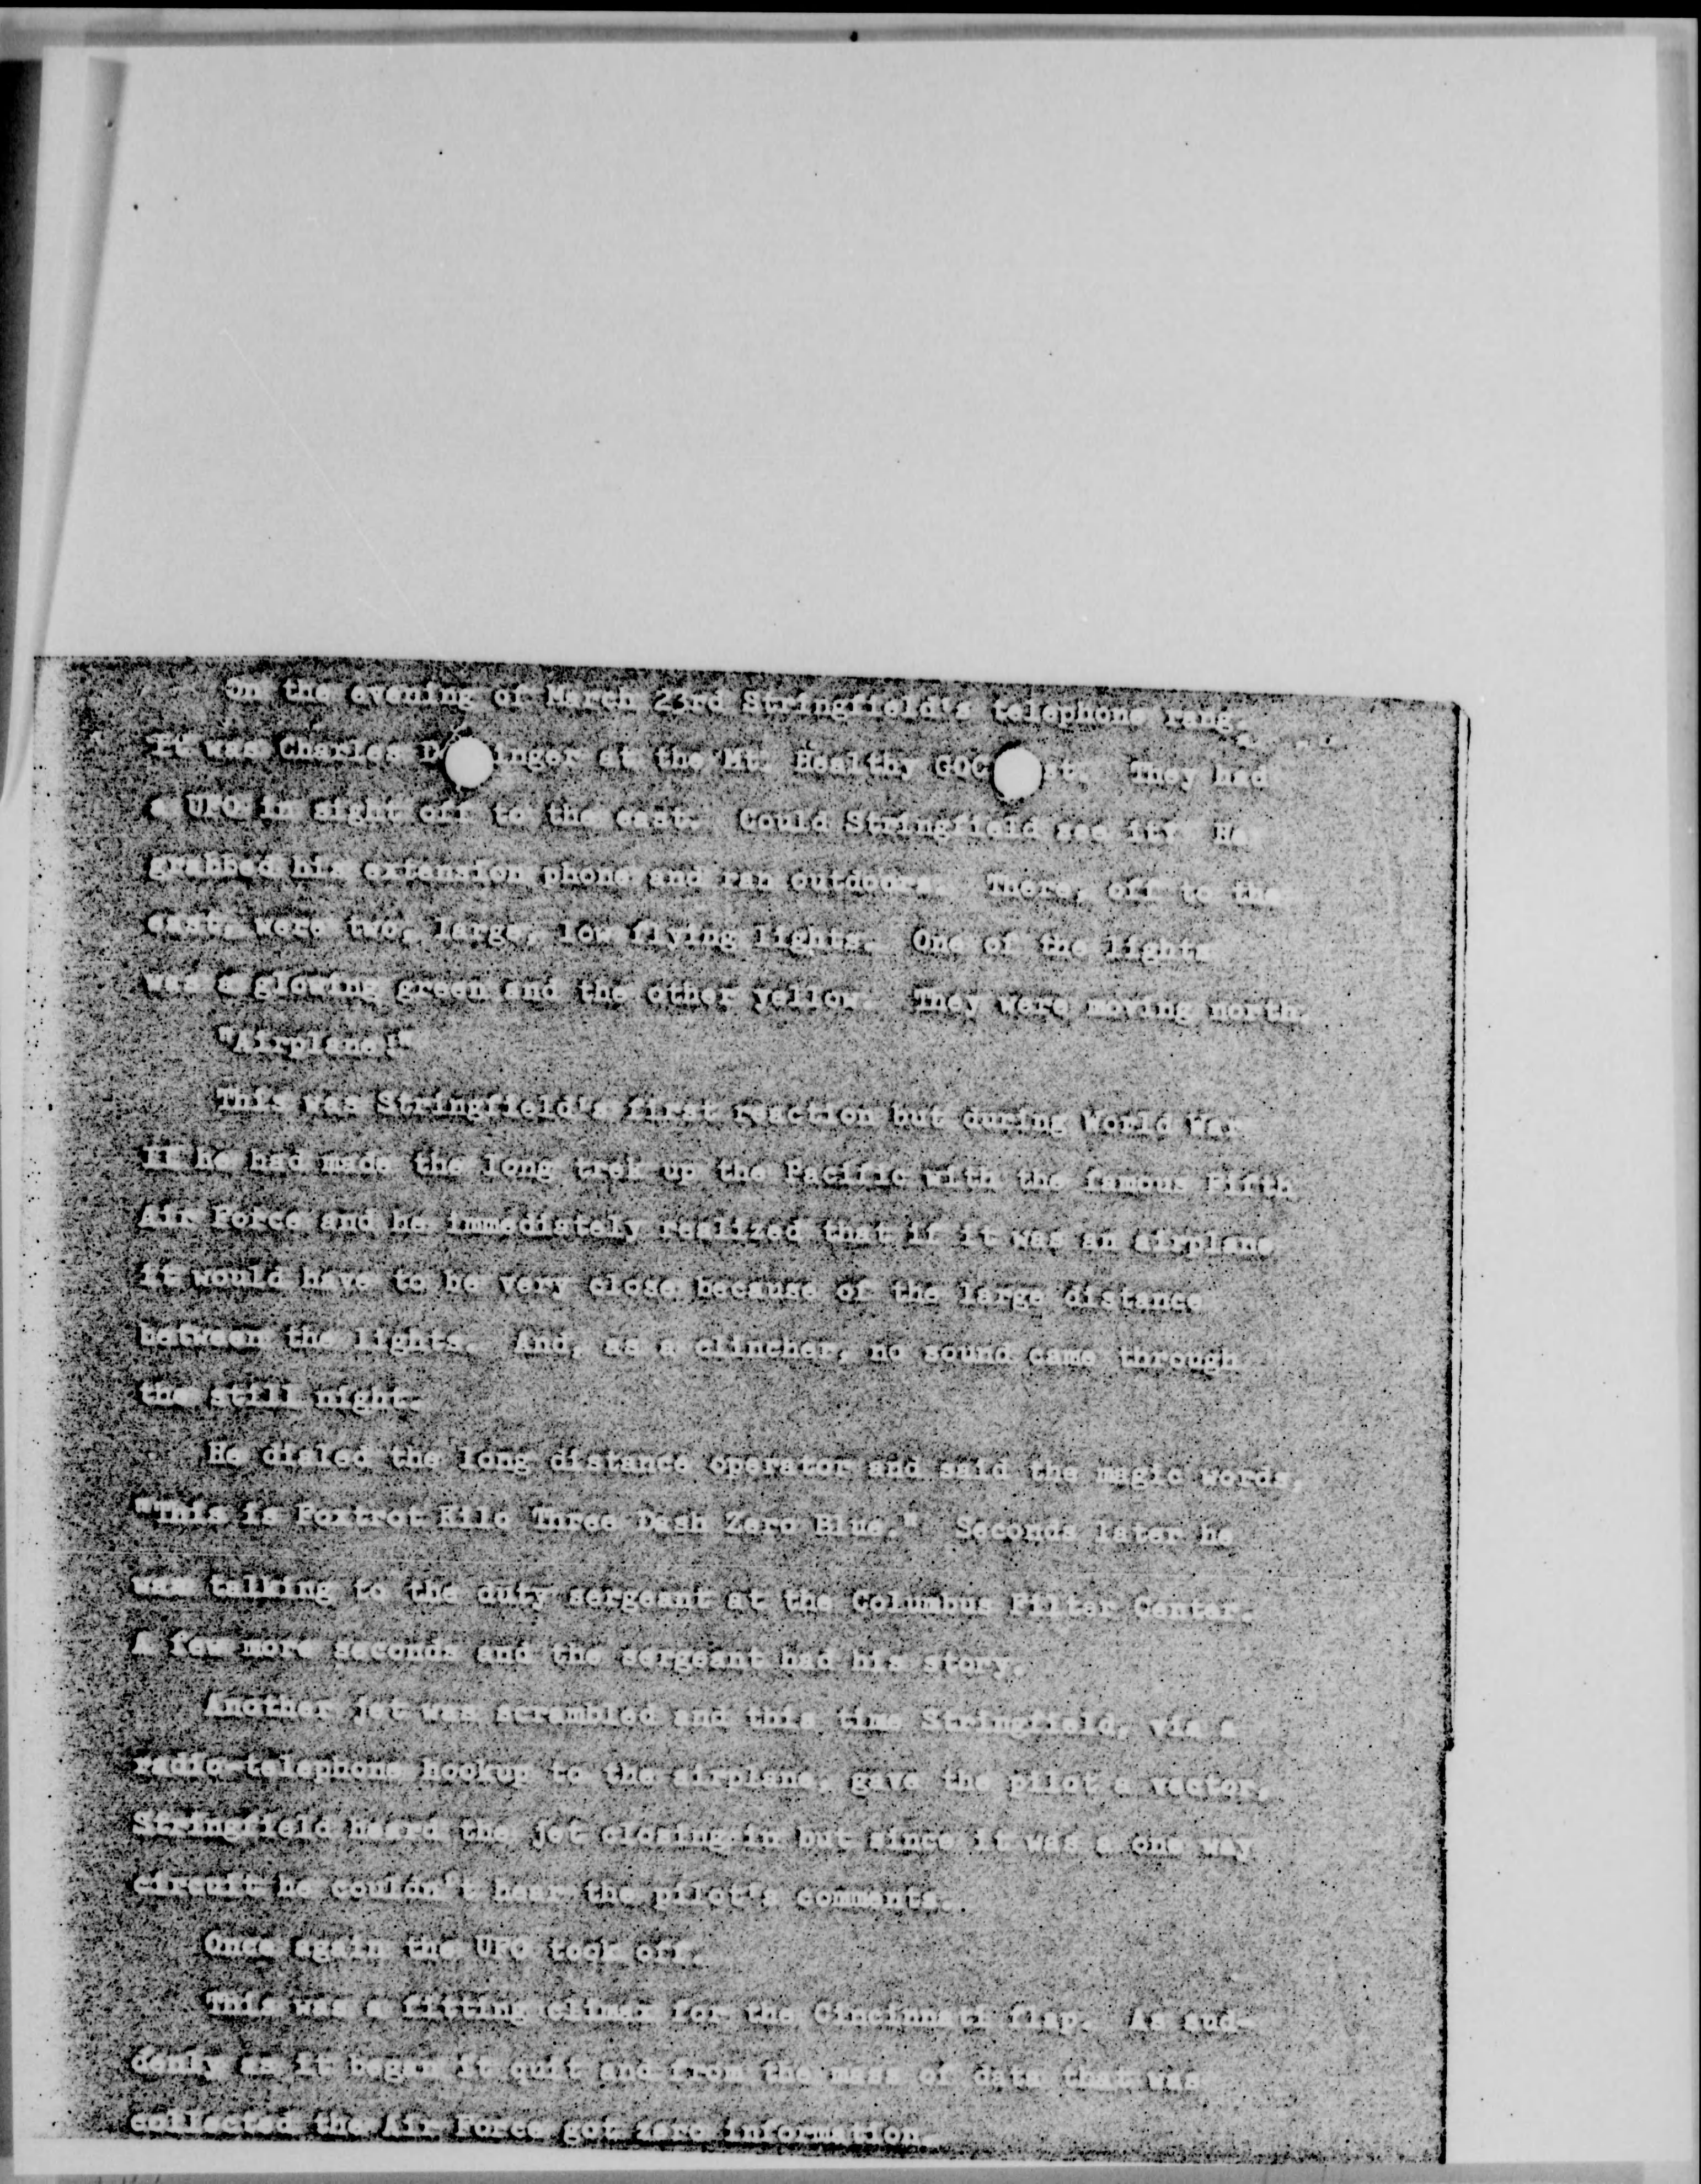 On the evening of March 23rd Stringfield's telephone rang.
It was Charles D inger at the Mt. Healthy GOC st. They had
a UFO in sight off to the east. Could Stringfield see it? He
grabbed his extension phone and ran outdoors. There, off to the
east, were two, large, low flying lights. One of the lights
was a glowing green and the other yellow. They were moving north.
"Airplane!"
This was Stringfield's first reaction but during World War
II he had made the long trek up the Pacific with the famous Fifth
Air Force and he immediately realized that if it was an airplane
it would have to be very close because of the large distance
between the lights. And, as a clincher, no sound came through
the still night.
He dialed the long distance operator and said the magic words,
"This is Foxtrot Kilo Three Dash Zero Blue." Seconds later he
was talking to the duty sergeant at the Columbus Filter Center.
A few more seconds and the sergeant had his story.
Another jet was scrambled and this time Stringfield, via a
radio-telephone hookup to the airplane, gave the pilot a vector.
Stringfield heard the jet closing in but since it was a one way
circuit he couldn't hear the pilot's comments.
Once again the UFO took off.
This was a fitting climax for the Cincinnati flap. As sud-
denly as it began it quit and from the mass of data that was
collected the Air Force got zero information.